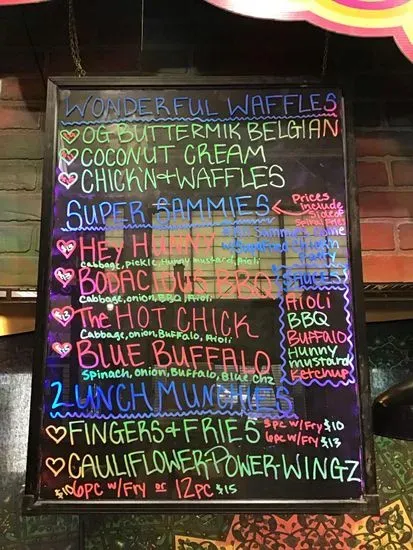 WONDERFUL WAFFLES
OG BUTTERMILK BELGIAN
COCONUT CREAM
CHICKN+WAFFLES
SUPER SAMMIES
Prices
include
side of
Spiral Fries
HEY HUNNY
Cabbage, pickle, Hunny mustard, Aioli
BODACIOUS BBQ
Cabbage, onion, BBQ, Aioli
The HOT CHICK
Cabbage, onion, Buffalo, Aioli
BLUE BUFFALO
Spinach, onion, Buffalo, Blue chz
SAUCES
AIOLI
BBQ
BUFFALO
Hunny
mustard
Ketchup
LUNCH MUNCHIES
FINGERS+FRIES 3pc w/Fry $10
6pc w/Fry $13
CAULIFLOWER POWER WINGZ
$10 6pc w/Fry or 12pc $15